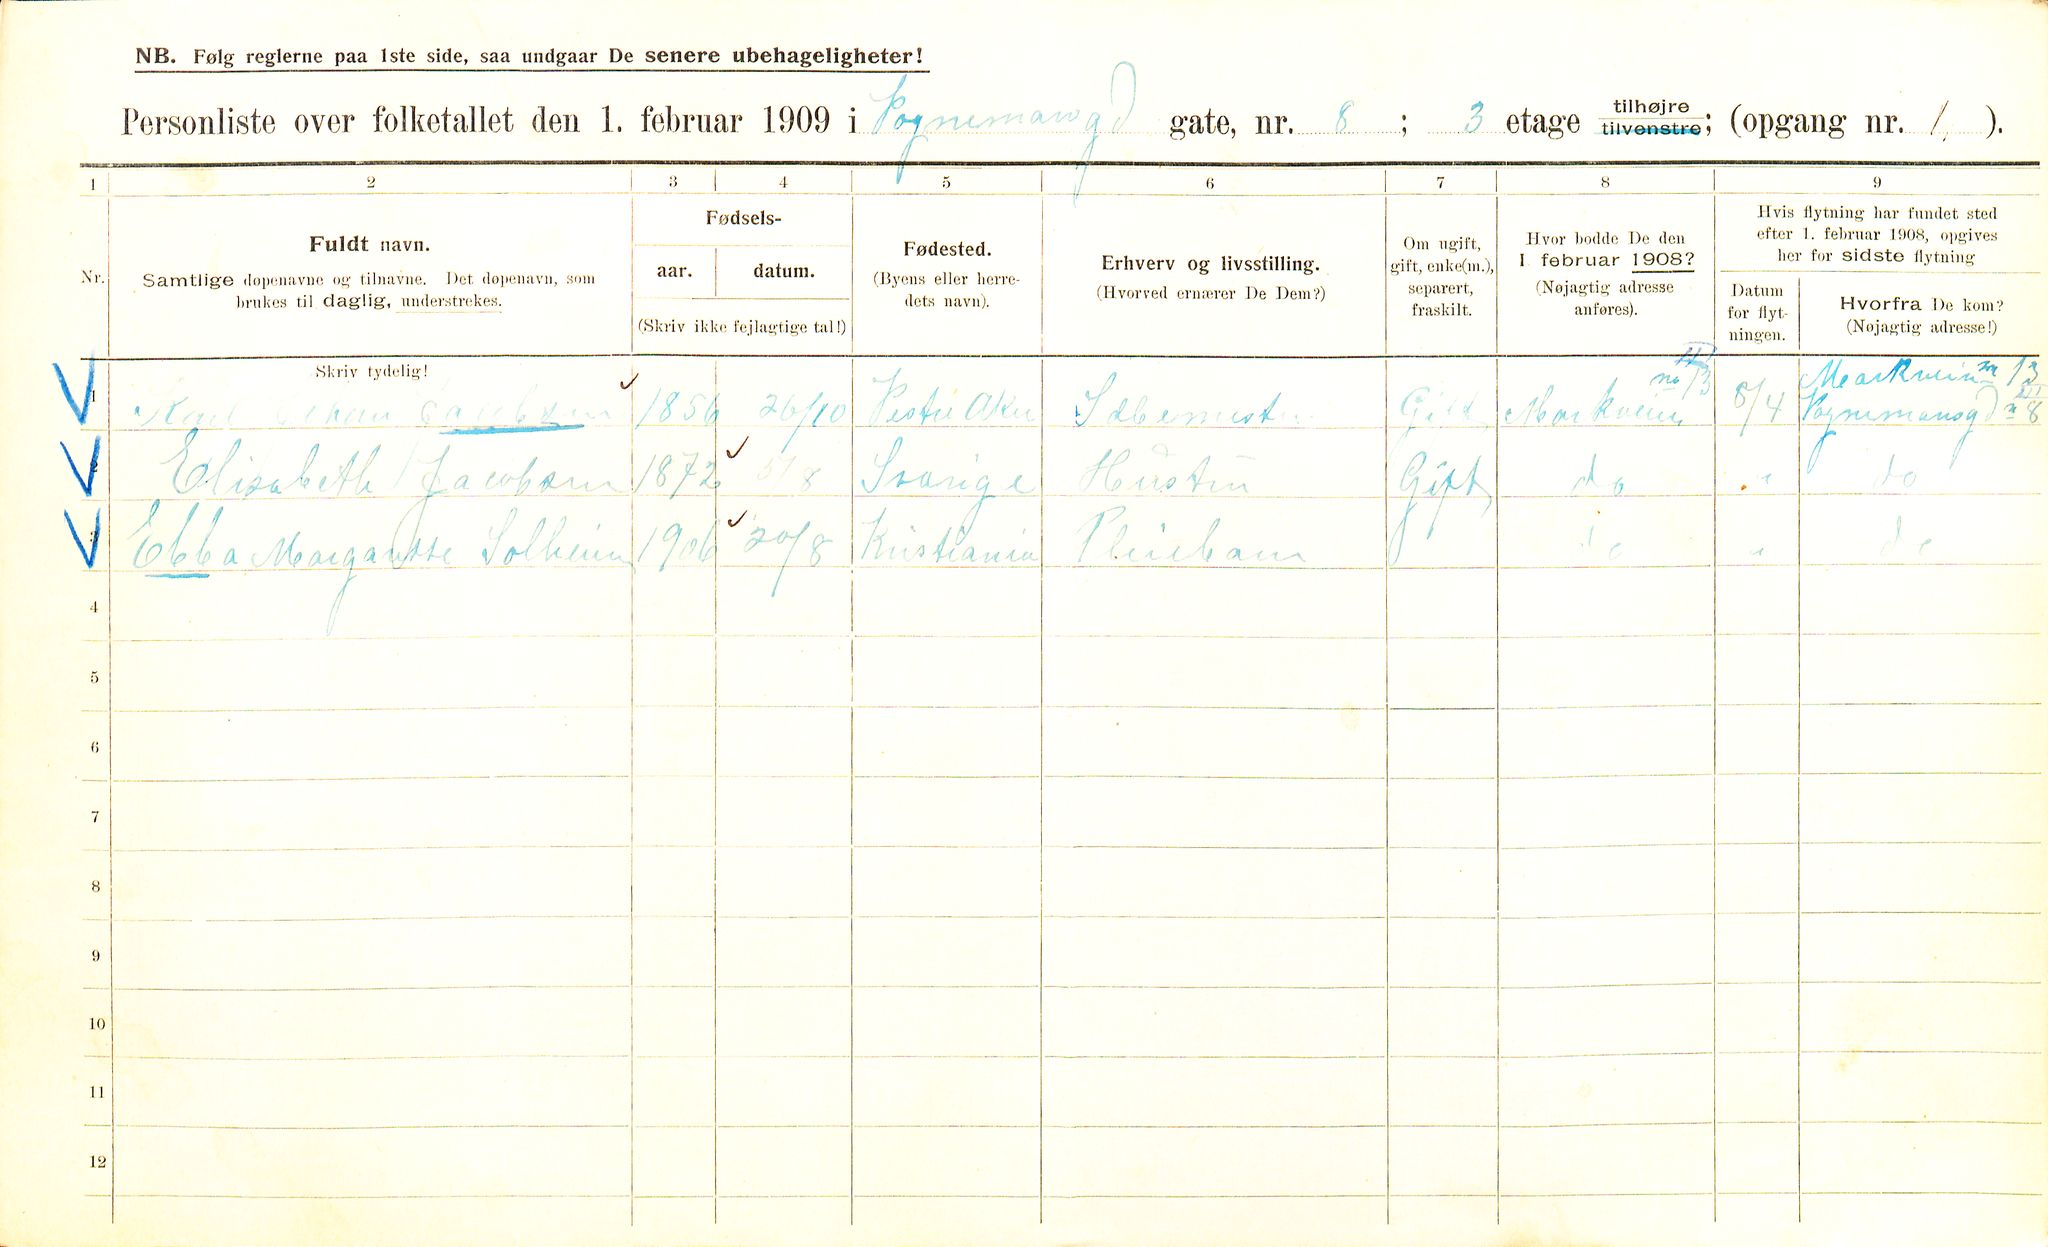 NB. Følg reglerne paa 1ste side, saa undgaar De senere ubehageligheter!
Personliste over folketallet den 1. februar 1909 i Vognmansgd gate, nr. 8 ; 3 etage tilhøjre tilvenstre; (opgang nr. 1, ).
1 2 3 4 5 6 7 8 9
Nr.
Fuldt navn.
Samtlige døpenavne og tilnavne. Det døpenavn, som
brukes til daglig, understrekes.
Fødsels-
aar. datum.
(Skriv ikke fejlagtige tal!)
Fødested.
(Byens eller herre-
dets navn).
Erhverv og livsstilling.
(Hvorved ernærer De Dem?)
Om ugift,
gift, enke(m.),
separert,
fraskilt.
Hvor bodde De den
1 februar 1908?
(Nøjagtig adresse
anføres).
Hvis flytning har fundet sted
efter 1. februar 1908, opgives
her for sidste flytning
Datum
for flyt-
ningen.
Hvorfra De kom?
(Nøjagtig adresse!)
Skriv tydelig!
1 Karl Johan Jacobsen 1856 20/10 Vestre Aker Gift Markveien no 13 8/4 Markveien 13
Vognmansgd 8
2 Elisabeth Jacobsen 1872 8 Sverige Hustru Gift do " do
3 Ebba Margarethe Solheim 1906 20/8 Kristiania Pleiebarn do " do
4
5
6
7
8
9
10
11
12